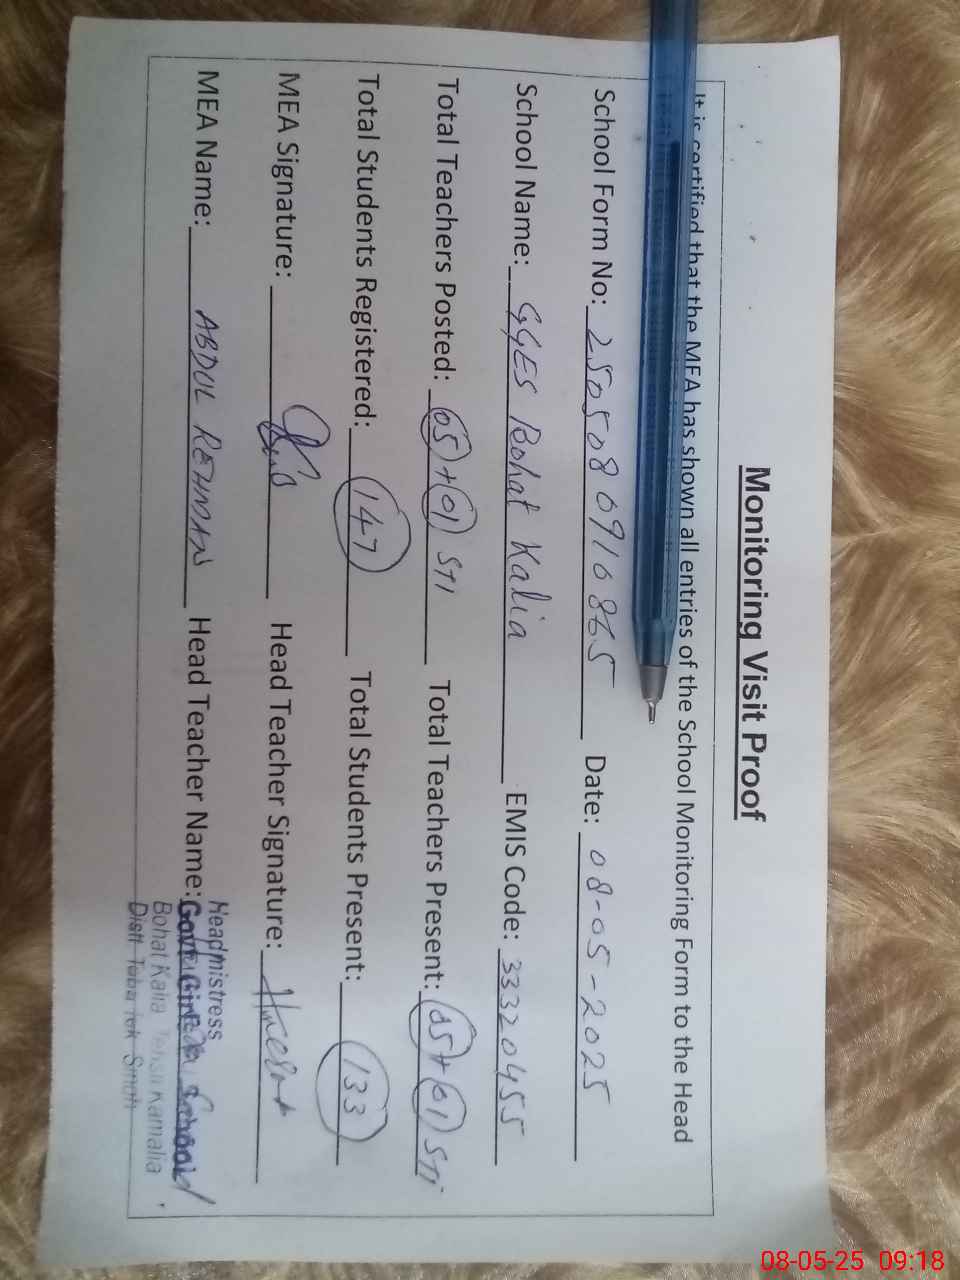 Monitoring Visit Proof
It is certified that the MEA has shown all entries of the School Monitoring Form to the Head
School Form No: 2505080910865 Date: 08-05-2025
School Name: GGES Bohat Kalia EMIS Code: 33320455
Total Teachers Posted: 05+01 STI Total Teachers Present: 05+01 STI
Total Students Registered: 147 Total Students Present: 133
MEA Signature: Head Teacher Signature:
MEA Name: ABDUL REHMAN Head Teacher Name:
Headmistress
Govt. School
Bohat Kalia Tehsil Kamalia
Distt Toba Tek Singh
08-05-25 09:18